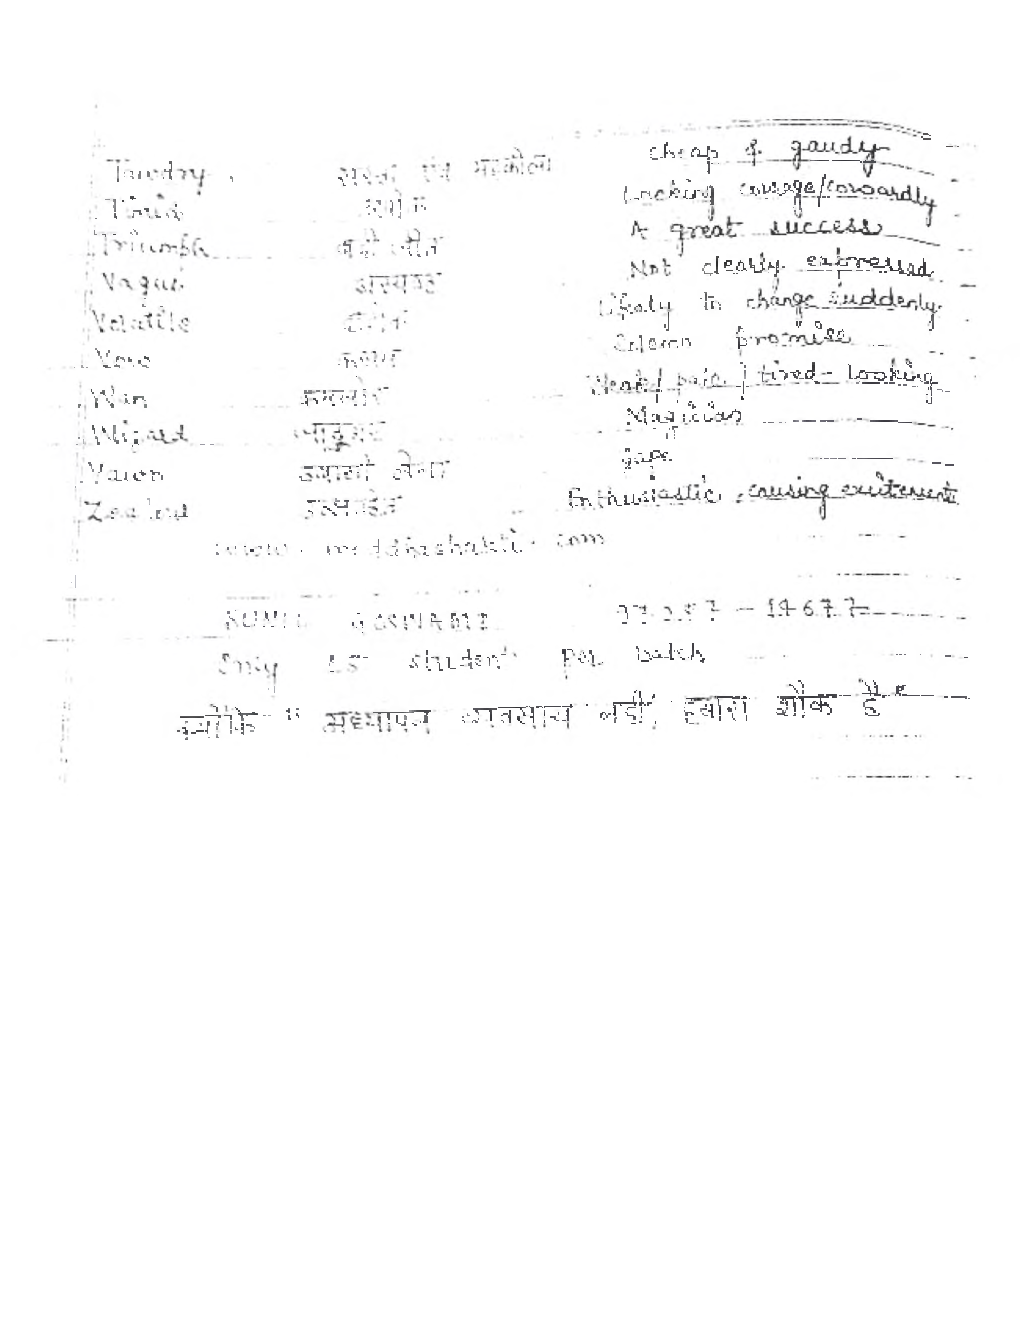 Tawdry सस्ता एवं भड़कीला cheap & gaudy
Timid Lacking courage/cowardly
Triumph बड़ी जीत A great success
Vague अस्पष्ट Not clearly expressed
Volatile Likely to change suddenly
Vow कसम Solemn promise
Wan कमजोर Weak/ pale / tired-looking
Wizard जादूगर Magician
Yawn उबासी लेना gape
Zealous Enthusiastic, causing excitement
.com
Only 15 students per batch
क्योंकि " अध्यापन व्यवसाय नहीं, हमारा शौक है"